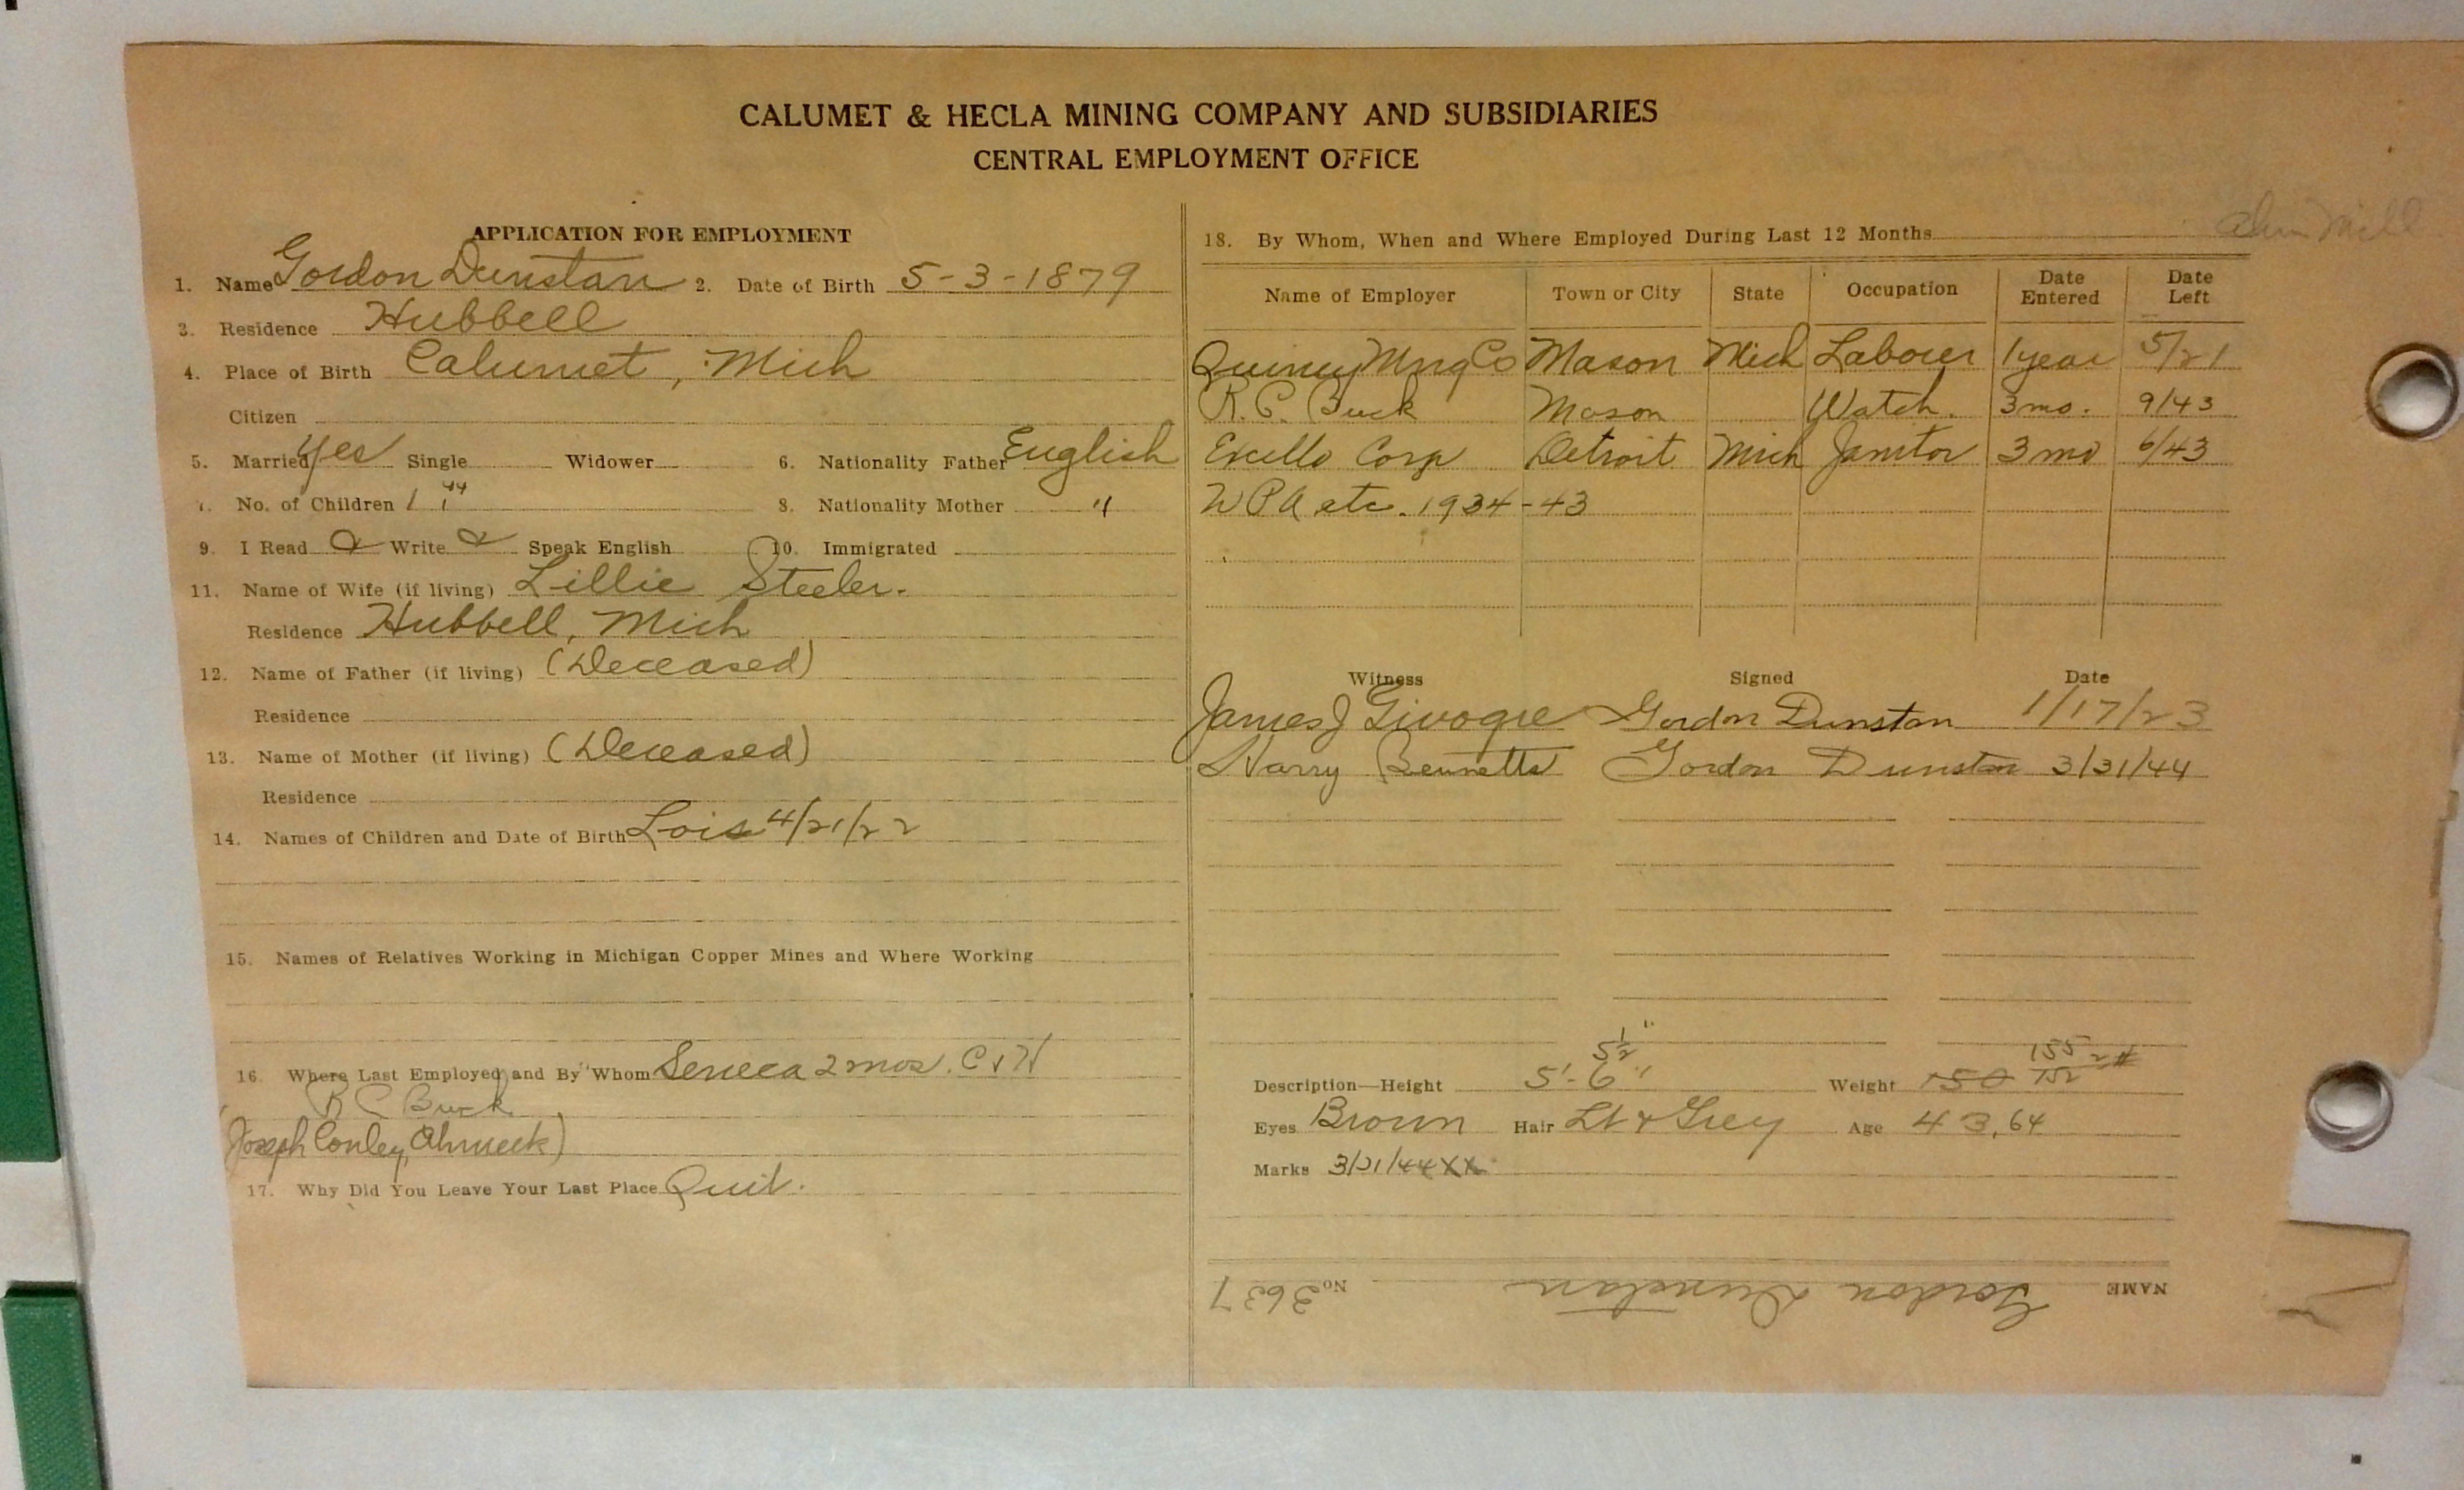 CALUMET & HECLA MINING COMPANY AND SUBSIDIARIES
CENTRAL EMPLOYMENT OFFICE
APPLICATION FOR EMPLOYMENT
1. Name Gordon Dunstan 2. Date of Birth 5-3-1879
3. Residence Hubbell
4. Place of Birth Calumet, Mich
Citizen
5. Married yes Single Widower 6. Nationality Father English
No. of Children 1 8. Nationality Mother "
9. I Read Write Speak English 10. Immigrated
11. Name of Wife (if living) Lillie Steeler.
Residence Hubbell, Mich
12. Name of Father (if living) (Deceased)
Residence
13. Name of Mother (if living) (Deceased)
Residence
14. Names of Children and Date of Birth Lois 4/21/22
15. Names of Relatives Working in Michigan Copper Mines and Where Working
16. Where Last Employed and By Whom Seneca 2 mos. C & H
R C Buck
(Joseph Conley, Ahmeek)
17. Why Did You Leave Your Last Place Quit.
Mill
18. By Whom, When and Where Employed During Last 12 Months
Name of Employer Town or City State Occupation Date Entered Date Left
Quincy Mng Co Mason Mich Laborer 1 year 5/21
R. C. Buck Mason Watch. 3 mo. 9/43
Excello Corp Detroit Mich Janitor 3 mo 6/43
WPA etc. 1934-43
Witness Signed Date
James J Givogre Gordon Dunstan 1/17/23
Harry Bennetts Gordon Dunstan 3/31/44
5 1/2"
155
Description—Height 5'-6" Weight 150 152 #
Eyes Brown Hair Lt & Grey Age 43, 64
Marks 3/31/44 XX
NAME Gordon Dunstan No 3637